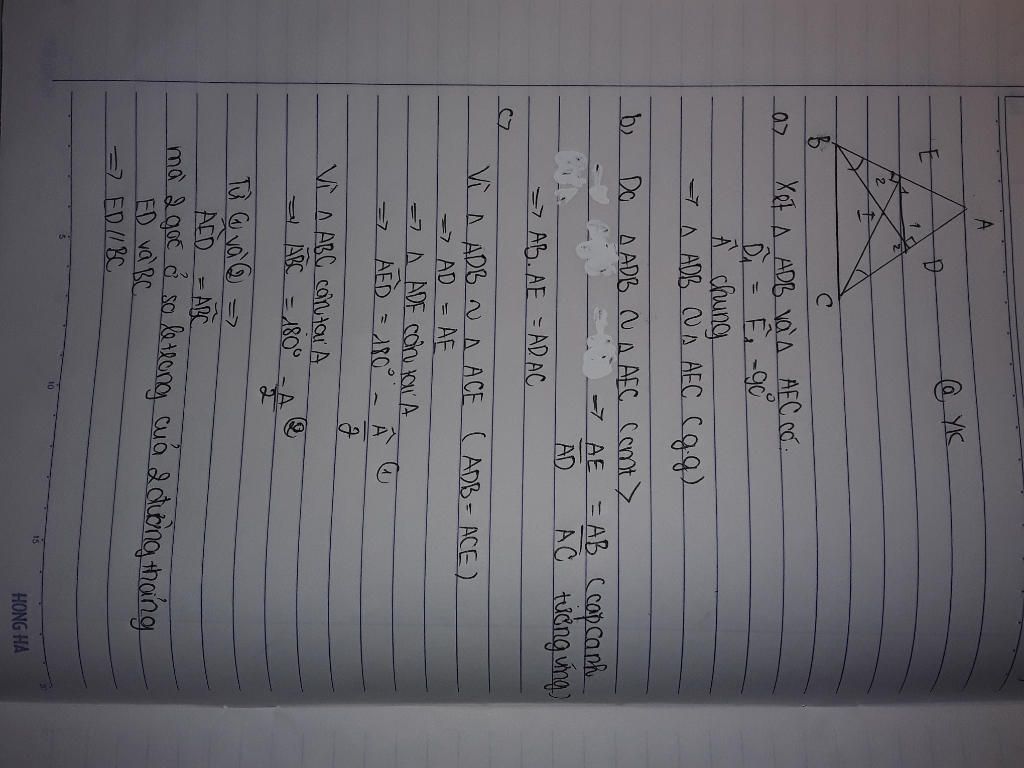 @ YK
A
E
D
1
1
2
2
I
B
C
a> Xét △ ADB và △ AEC có:
D̂₁ = Ê₁ = 90°
Â chung
→ △ ADB ~ △ AEC (g.g)
b, Do △ADB ~ △AEC (cmt)
=> AE/AD = AB/AC (cặp cạnh tương ứng)
=> AB.AE = AD.AC
c>
Vì △ ADB ~ △ ACE ( ADB = ACE)
=> AD = AE
=> △ ADE cân tại A
=> AÊD = 180° - Â/2 (1)
Vì △ ABC cân tại A
=> AB̂C = 180° - A/2 (2)
Từ (1) và (2) =>
AÊD = AB̂C
mà 2 góc ở so le trong của 2 đường thẳng
ED và BC
=> ED//BC
5
10
15
HONG HA